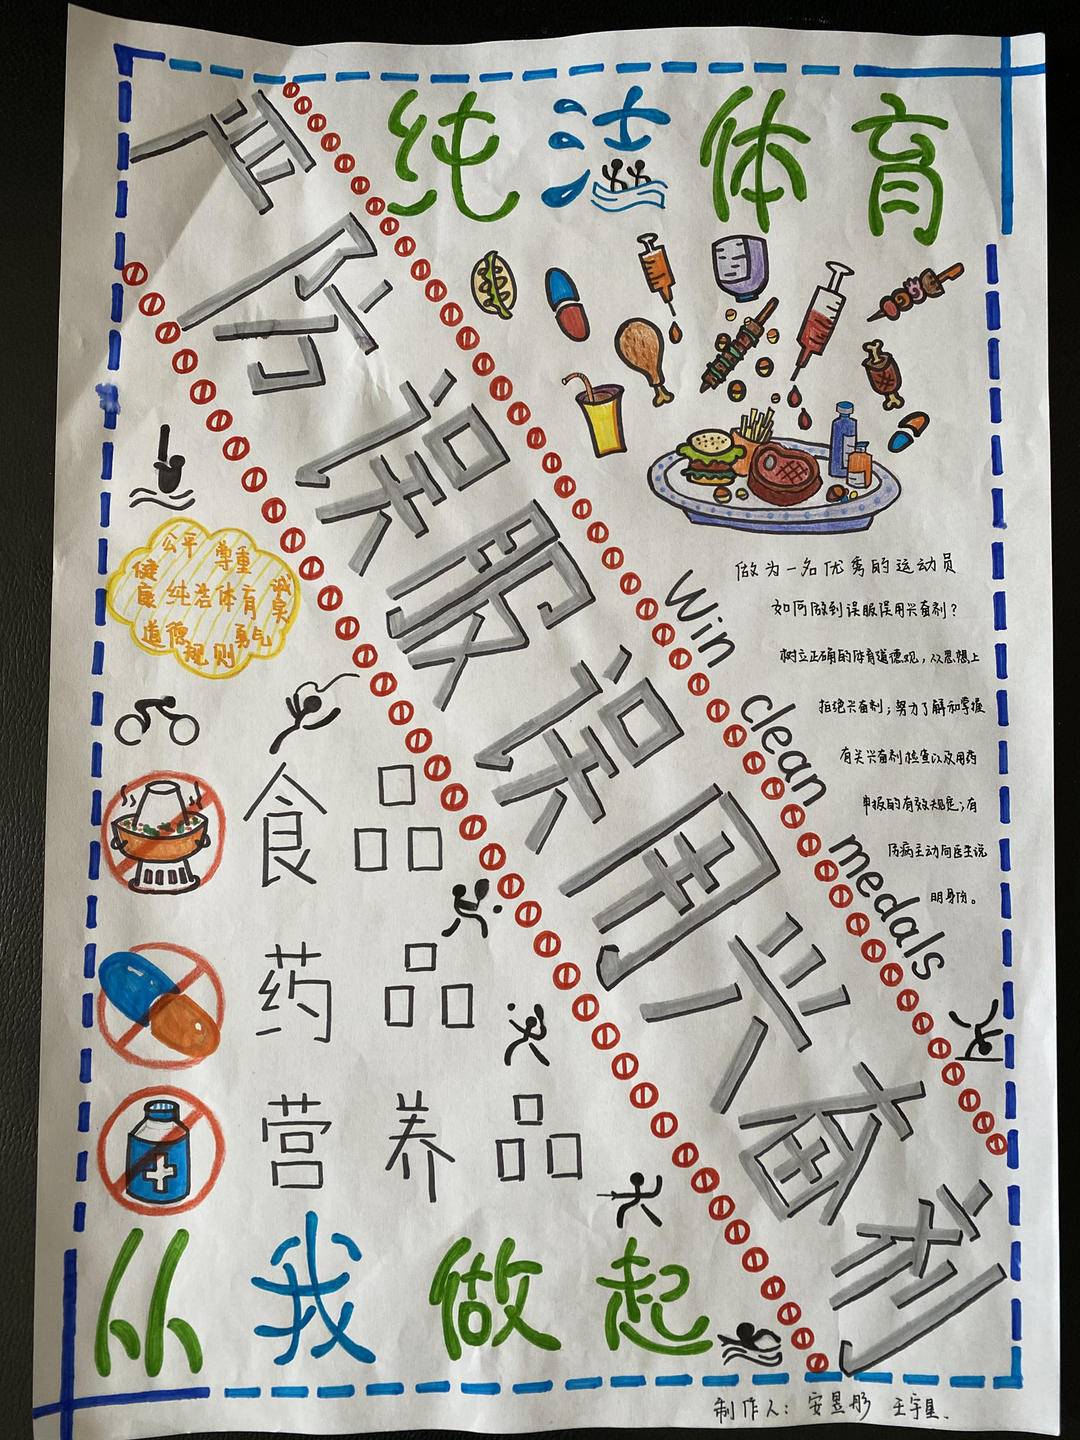 纯洁体育
严防误服误用兴奋剂
公平 尊重
健康 纯洁体育 诚实
道德 规则 勇气
Win clean medals
做为一名优秀的运动员
如何做到误服误用兴奋剂？
树立正确的体育道德观，从思想上
拒绝兴奋剂；努力了解和掌握
有关兴奋剂检查以及用药
申报的有效规定；有
伤病主动向医生说
明身份。
食品
药品
营养品
从我做起
制作人：安昱彤 王宇星.